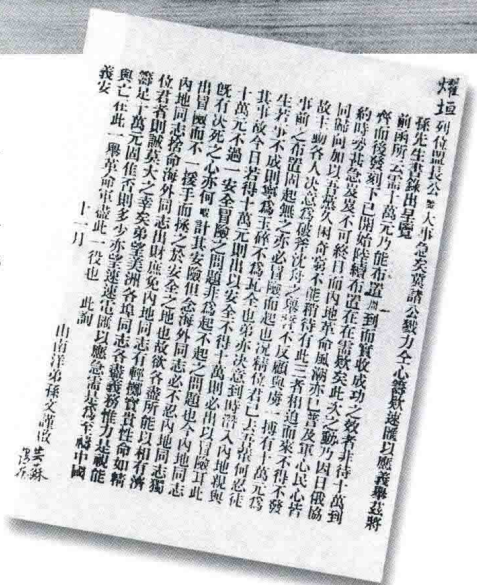 燿垣列位盟長公鑒大事急矣冀諸公毅力仝心籌欵速匯以應義舉茲將
孫先生書錄出呈覽
前函所云需十萬元乃能布置周到而實收成功之效者非待十萬到
齊而後發刻下已開始陸續布置在在需欵矣此次之動乃因日俄協
約時勢其急岌岌不可終日而內地革命風潮亦已普及軍心民心皆
同歸向加以吾黨久困奇窮不能稍待有此三者相迫而來不得不發
故主動各人決志為破釜沈舟之舉誓不反顧與虜一搏有十萬元為
事前之布置固起無之亦必冒險而起也況精位君已上吾懷何忍徒
生若事不成則寧為玉碎不為瓦全也弟亦決意到時潛入內地親與
其事故今日若得十萬元則出以安全不得十萬則必出以冒險耳此
十萬元不過一安全冒險之問題非為起不起之問題也今內地同志
旣有決死之心亦何暇計其安險但念海外同志必不忍內地同志獨
出冒險而不一援手而拯之於安全之地也故欲各盡所能以相有濟
內地同志捨命海外同志出財庶免內地同志有輕擲寶貴性命如精
位君者則誠莫大之幸矣弟望美洲各埠同志各盡義務惟力是視能
籌足十萬元固佳否則多少亦望速速電匯以應急需是為至禱中國
興亡在此一舉革命軍盡此一役也 此詢
義安
十一月 由南洋弟孫文謹啟